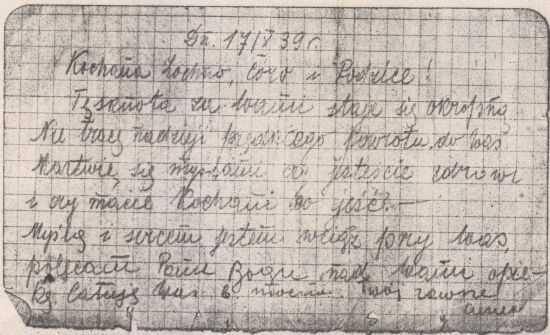 Dn. 17/X 39 r.
Kochana Zochno, Córo i Rodzice!
Tęsknota za Wami staje się okropną
Nie tracę nadzieji prędkiego Powrotu do Was
Martwię się myślami co jesteście zdrowi
i czy macie Kochani co jeść? —
Myślą i sercem jestem wciąż przy Was
polecam Panu Bogu nad Wami opie-
kę Całuję Was Twój zawsze